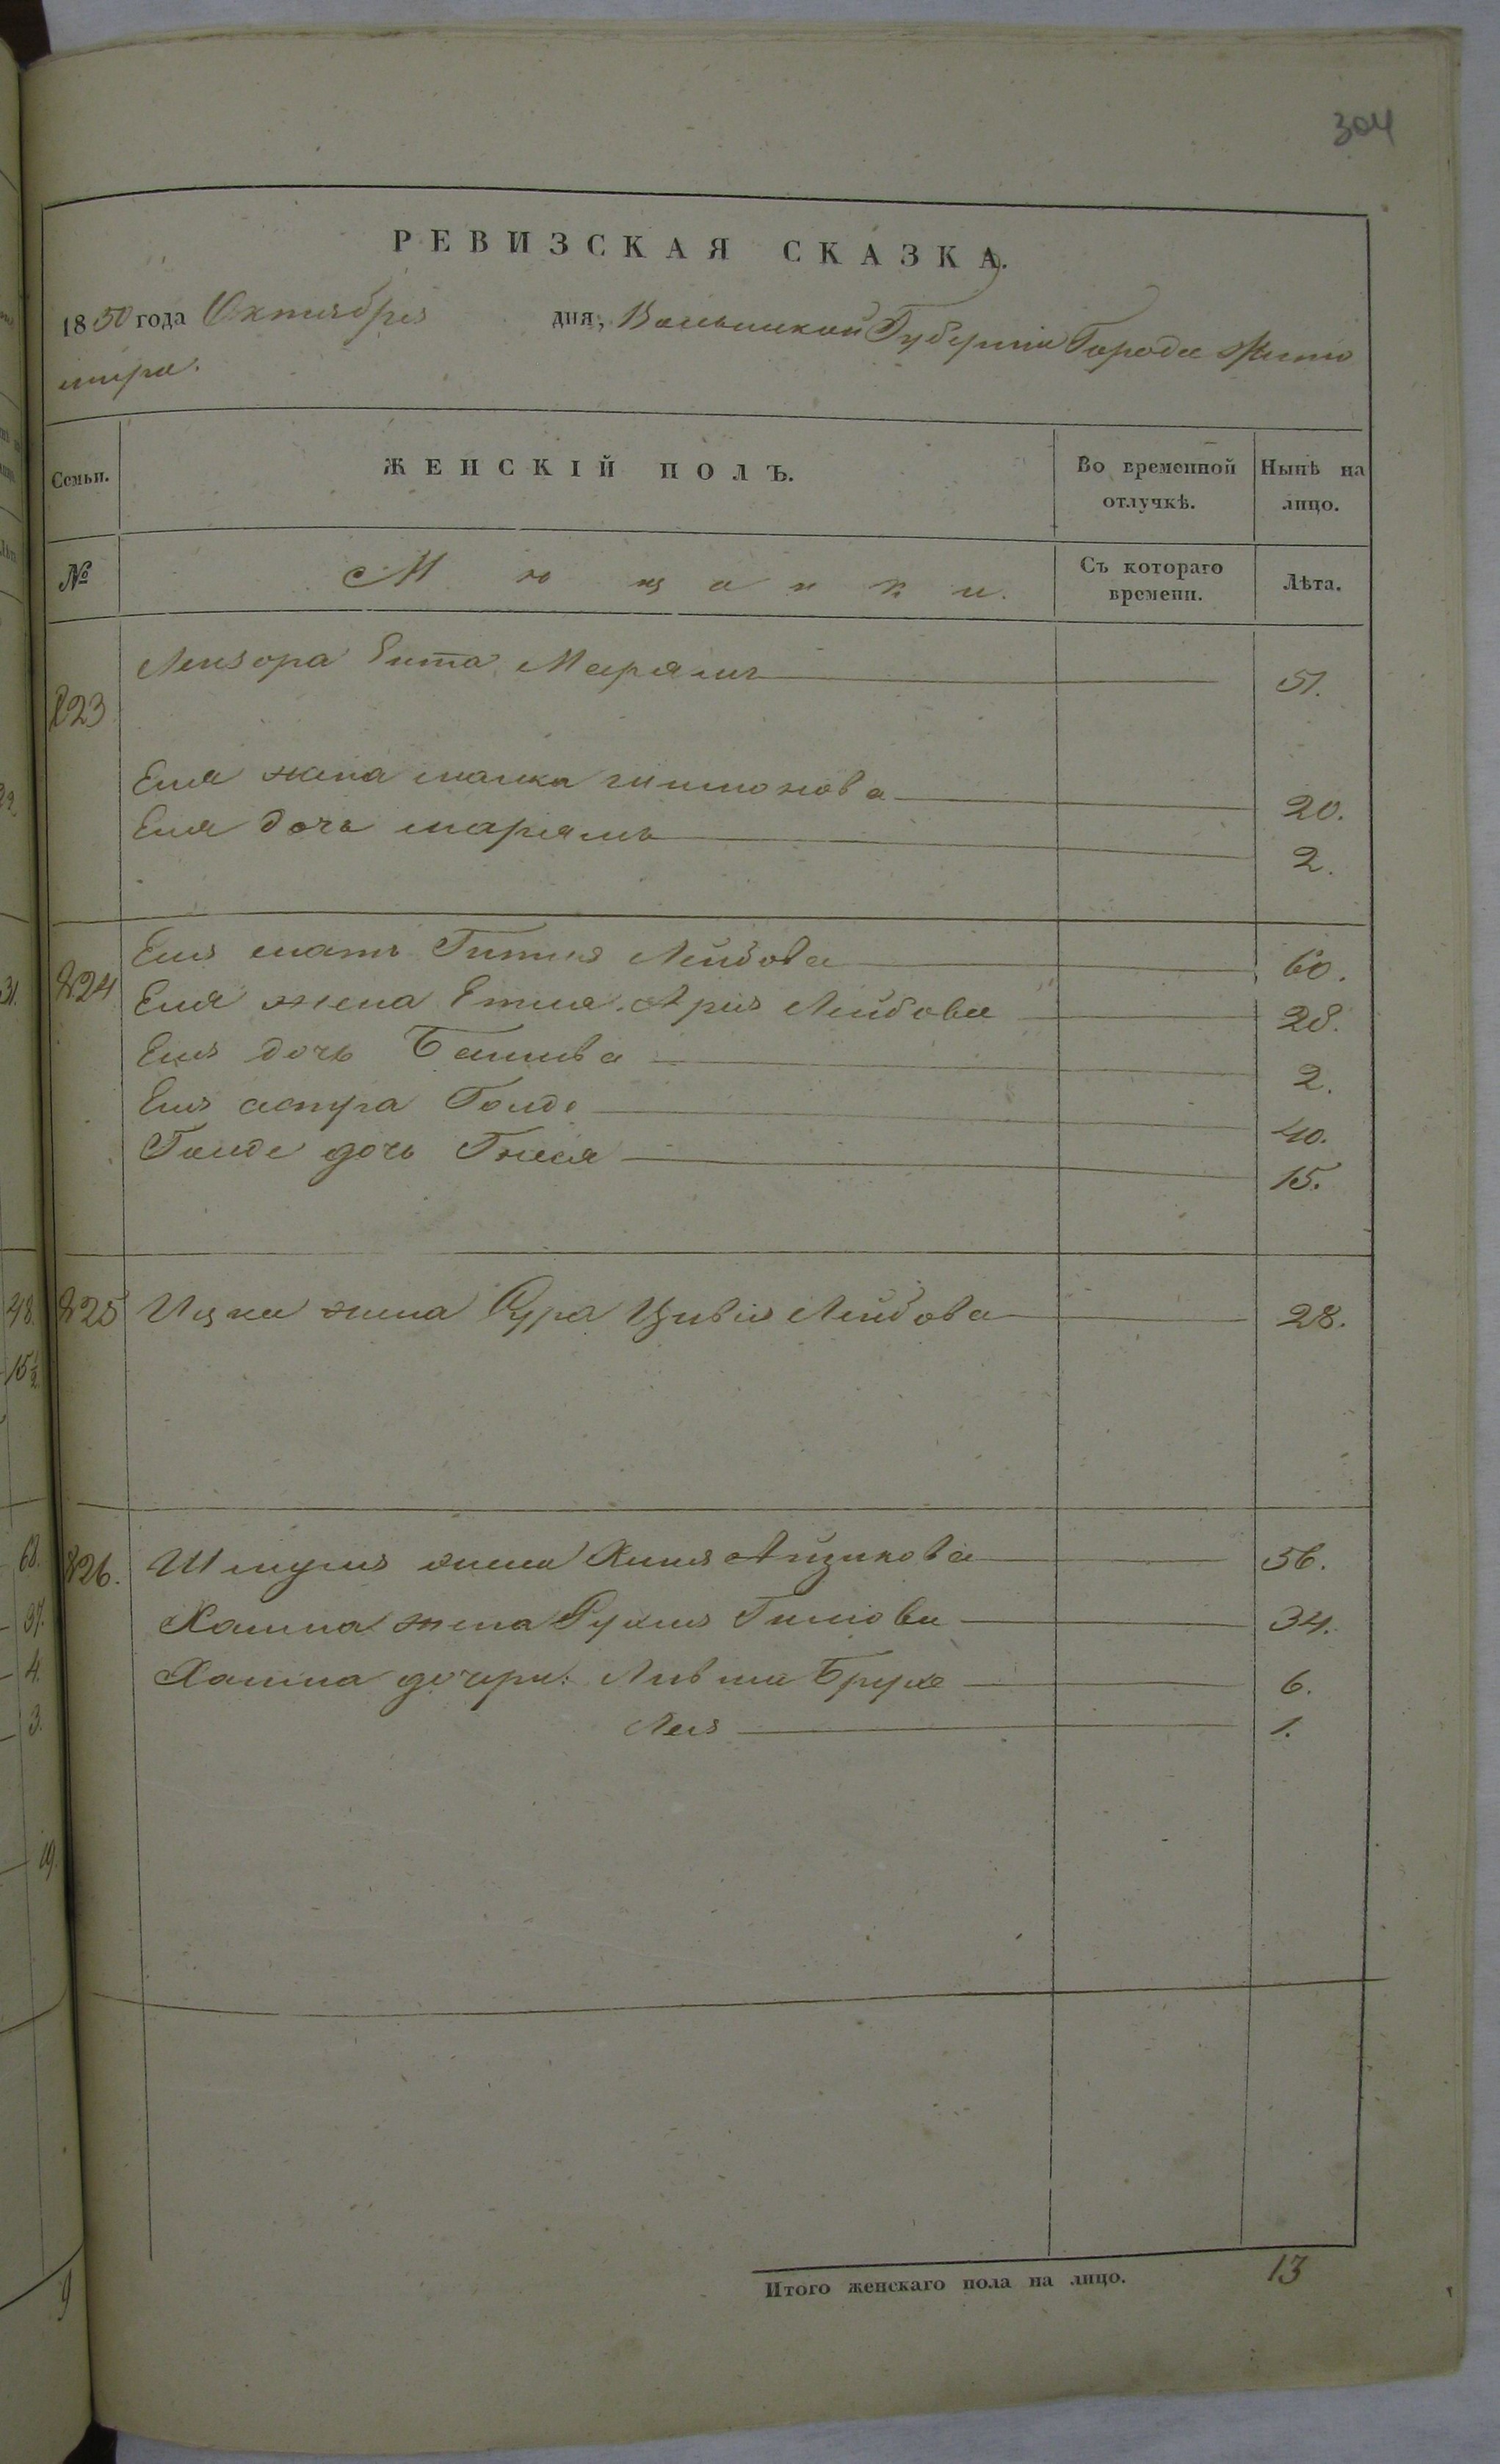 304
РЕВИЗСКАЯ СКАЗКА.
1850 года Октября дня, Волынской Губерніи Города Жито
мира.
Семьи. ЖЕНСКІЙ ПОЛЪ. Во временной отлучкѣ. Нынѣ на лицо.
№ Мѣщанки. Съ котораго времени. Лѣта.
823 Лейзора Ента Марямъ 51.
Ея жена малка 20.
Ея дочь маріямъ 2.
824 Ея мать Гитля Лейбова 60.
Ея жена Етля Лейбова 28.
Ея дочь Башива 2.
Ея сестра Голде 40.
Голде дочь Гнеся 15.
825 Ицка жена Сура Цивія Лейбова 28.
826. Шмуля жена Хиня Айзикова 56.
Хаима жена Рухля 34.
Хаима дочери: Ливша Брухе 6.
Лея 1.
Итого женскаго пола на лицо. 13